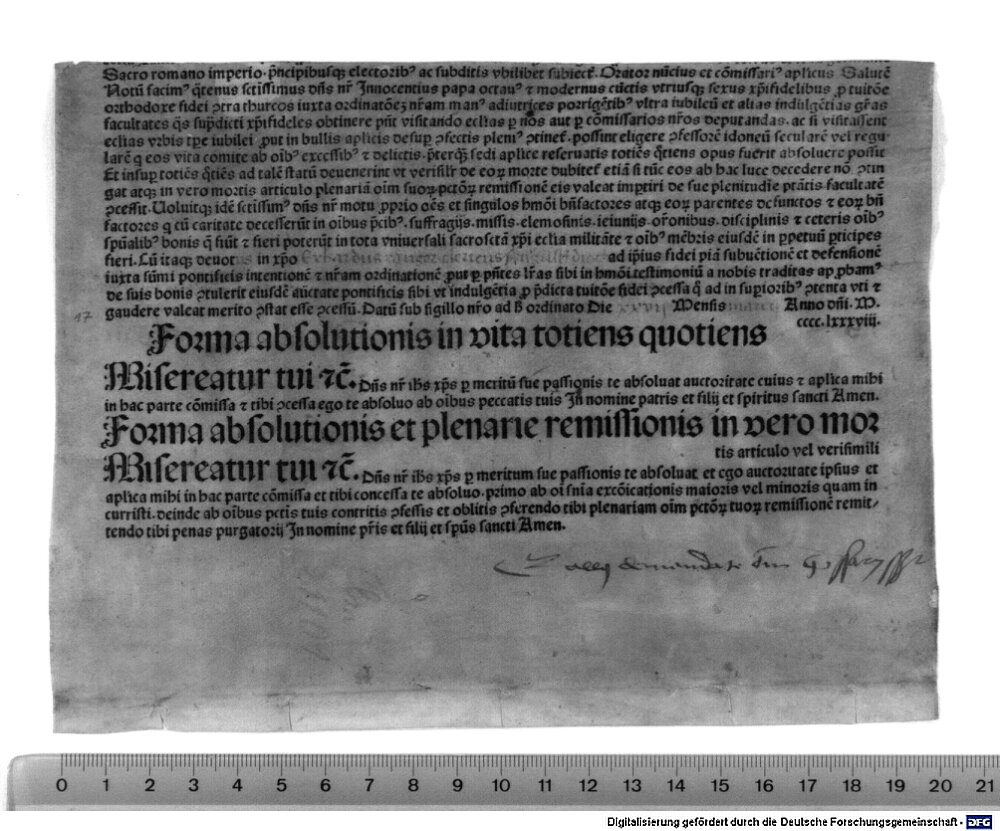 Sacro romano imperio· pñcipibusqꝫ electoribꝰ ac subditis vbilibet subiect̃· Orator nũcius et cõmissariꝰ aplicus Salutẽ
Notũ facimꝰ qͥtenus sctissimus dñs nr̃ Innocentius papa octauꝰ ⁊ modernus cũctis vtriusqꝫ sexus xp̃ifidelibus ꝓ tuitõe
orthodoxe fidei ↄtra thurcos iuxta ordinatõeꝫ nr̃am manꝰ adiutrices porrigẽtibꝰ vltra iubileũ et alias indulgẽtias gr̃as
facultates q̃s sup̃dicti xp̃ifideles obtinere pñt visitando ecl̃ias ꝑ nos aut ꝑ cõmissarios nr̃os deputandas· ac si visitassent
ecl̃ias vrbis tp̃e iubilei ꝓut in bullis aplicis desuꝑ ↄfectis pleniꝰ ↄtinet̃· possint eligere ↄfessorẽ idoneũ secularẽ vel regu
larẽ q̃ eos vita comite ab oĩbꝰ excessibꝰ ⁊ delictis· p̃terqꝫ sedi aplice reseruatis totiẽs qͦtiens opus fuerit absoluere possit
Et insuꝑ totiẽs qͦtiẽs ad talẽ statũ deuenerint vt verisilr̃ de eoꝝ morte dubitet̃ etiã si tũc eos ab hac luce decedere nõ ↄtin
gat atqꝫ in vero mortis articulo plenariã oĩm suoꝝ pctõꝝ remissionẽ eis valeat imꝑtiri de sue plenitudĩe ptãtis facultatẽ
ↄcessit· Uoluitqꝫ idẽ sctissimꝰ dñs nr̃ motu ꝓprio oẽs et singulos hmõi bñfactores atqꝫ eoꝝ parentes defunctos ⁊ eoꝝ bñ
factores q̃ cũ caritate decesserũt in oĩbus p̃cibꝰ· suffragijs· missis· elemosinis· ieiunijs· or̃onibus· disciplinis ⁊ ceteris oĩbꝰ
spũalibꝰ bonis q̃ fiũt ⁊ fieri poterũt in tota vniuersali sacrosctã xp̃i ecl̃ia militãte ⁊ oĩbꝰ mẽbris eiusdẽ in ꝑpetuũ ꝑticipes
fieri· Cũ itaqꝫ deuot in xpo ad ip̃ius fidei piã subuẽtionẽ et defensionẽ
iuxta sũmi pontificis intentionẽ ⁊ nr̃am ordinationẽ ꝓut ꝑ p̃ntes lr̃as sibi in hmõi testimoniũ a nobis traditas apꝓbamꝰ
de suis bonis ↄtulerit eiusdẽ auctate pontificis sibi vt indulgẽtia ꝓ p̃dicta tuitõe fidei ↄcessa q̃ ad in suꝑioribꝰ ↄtenta vti ⁊
gaudere valeat merito ↄstat esse ↄcessũ· Datũ sub sigillo nr̃o ad B ordinato Die xxvij Mensis marcii Anno dñi· M·
17 cccc·lxxxviij·
Forma absolutionis in vita totiens quotiens
Misereatur tui ⁊c̃· Dñs nr̃ ihs xp̃s ꝑ meritũ sue passionis te absoluat auctoritate cuius ⁊ aplica mihi
in hac parte cõmissa ⁊ tibi ↄcessa ego te absoluo ab oĩbus peccatis tuis In nomine patris et filij et spiritus sancti Amen·
Forma absolutionis et plenarie remissionis in vero mor
tis articulo vel verisimili
Misereatur tui ⁊c̃· Dñs nr̃ ihs xp̃s ꝑ meritum sue passionis te absoluat et ego auctoritate ipsius et
aplica mihi in hac parte cõmissa et tibi concessa te absoluo· primo ab oĩ snĩa excõicationis maioris vel minoris quam in
curristi· deinde ab oĩbus pctis tuis contritis ↄfessis et oblitis ↄferendo tibi plenariam oĩm pctõꝝ tuoꝝ remissionẽ remit/
tendo tibi penas purgatorij In nomine pr̃is et filij et spũs sancti Amen·
0 1 2 3 4 5 6 7 8 9 10 11 12 13 14 15 16 17 18 19 20 21
Digitalisierung gefördert durch die Deutsche Forschungsgemeinschaft - DFG